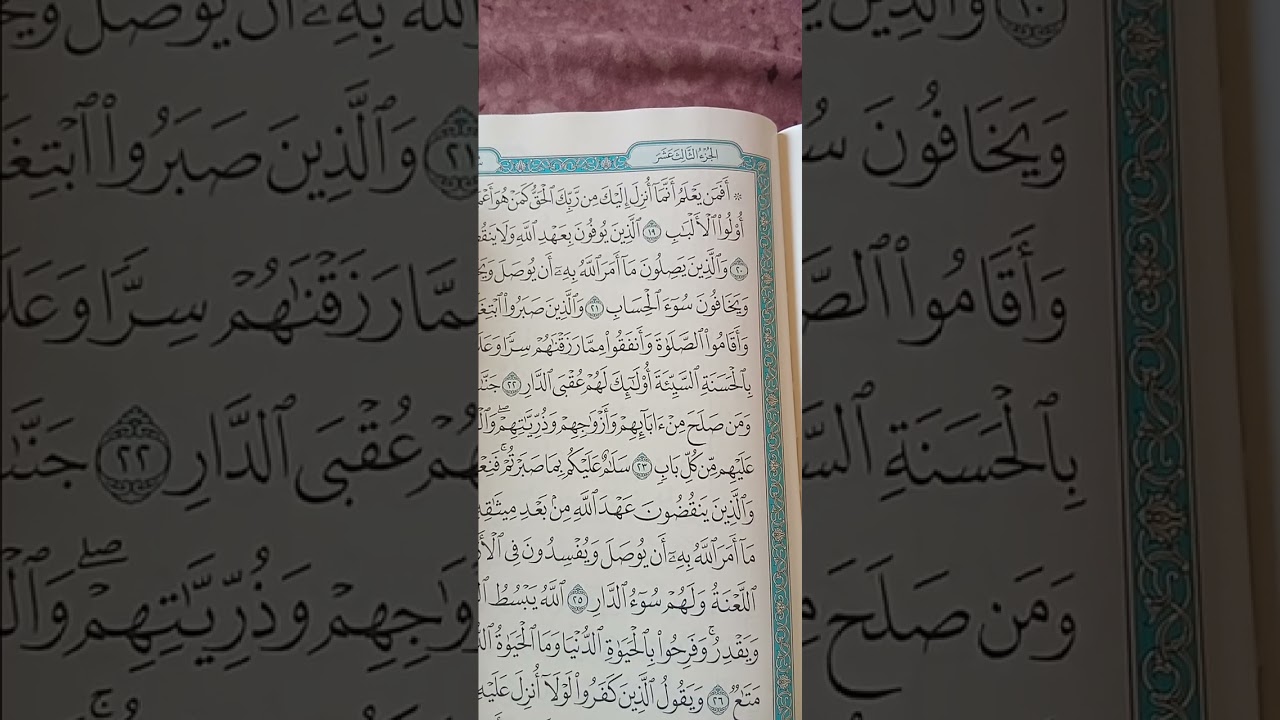 الجُزْءُ الثَّالِثَ عَشَرَ
۞ أَفَمَن يَعْلَمُ أَنَّمَآ أُنزِلَ إِلَيْكَ مِن رَّبِّكَ ٱلْحَقُّ كَمَنْ هُوَ
أُوْلُواْ ٱلْأَلْبَٰبِ ١٩ ٱلَّذِينَ يُوفُونَ بِعَهْدِ ٱللَّهِ وَلَا
٢٠ وَٱلَّذِينَ يَصِلُونَ مَآ أَمَرَ ٱللَّهُ بِهِۦٓ أَن يُوصَلَ
وَيَخَافُونَ سُوٓءَ ٱلْحِسَابِ ٢١ وَٱلَّذِينَ صَبَرُواْ
وَأَقَامُواْ ٱلصَّلَوٰةَ وَأَنفَقُواْ مِمَّا رَزَقْنَٰهُمْ سِرًّا
بِٱلْحَسَنَةِ ٱلسَّيِّئَةَ أُوْلَٰٓئِكَ لَهُمْ عُقْبَى ٱلدَّارِ ٢٢
وَمَن صَلَحَ مِنْ ءَابَآئِهِمْ وَأَزْوَٰجِهِمْ وَذُرِّيَّٰتِهِمْۖ
عَلَيْهِم مِّن كُلِّ بَابٍ ٢٣ سَلَٰمٌ عَلَيْكُم بِمَا صَبَرْتُمْۚ
وَٱلَّذِينَ يَنقُضُونَ عَهْدَ ٱللَّهِ مِنۢ بَعْدِ مِيثَٰقِهِ
مَآ أَمَرَ ٱللَّهُ بِهِۦٓ أَن يُوصَلَ وَيُفْسِدُونَ فِى
ٱللَّعْنَةُ وَلَهُمْ سُوٓءُ ٱلدَّارِ ٢٥ ٱللَّهُ يَبْسُطُ
وَيَقْدِرُۚ وَفَرِحُواْ بِٱلْحَيَوٰةِ ٱلدُّنْيَا وَمَا ٱلْحَيَوٰةُ
مَتَٰعٌ ٢٦ وَيَقُولُ ٱلَّذِينَ كَفَرُواْ لَوْلَآ أُنزِلَ عَلَيْهِ